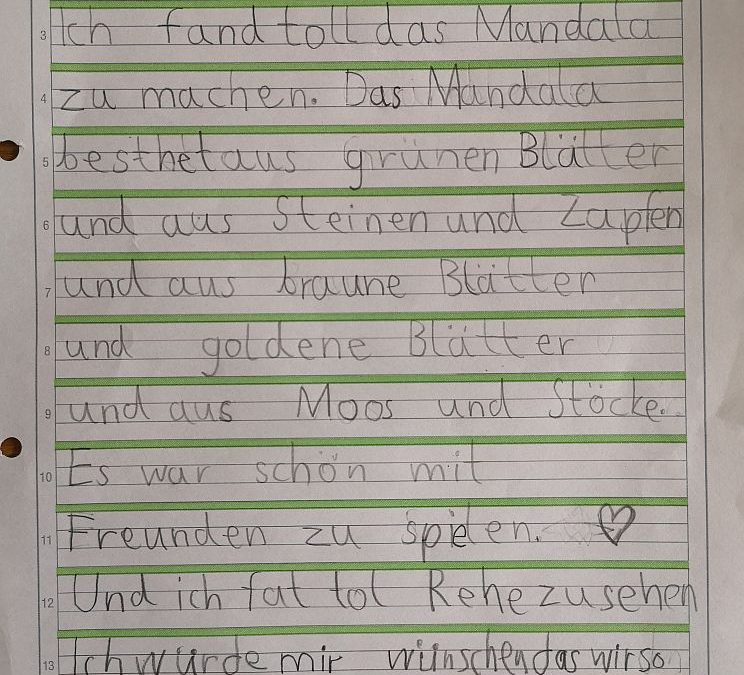 3 Ich fand toll das Mandala
4 zu machen. Das Mandala
5 besthet aus grünen Blätter
6 und aus Steinen und Zapfen
7 und aus braune Blätter
8 und goldene Blätter
9 und aus Moos und Stöcke.
10 Es war schön mit
11 Freunden zu spielen. ♡
12 Und ich fat tol Rehe zu sehen
13 Ich würde mir wünschen das wir so